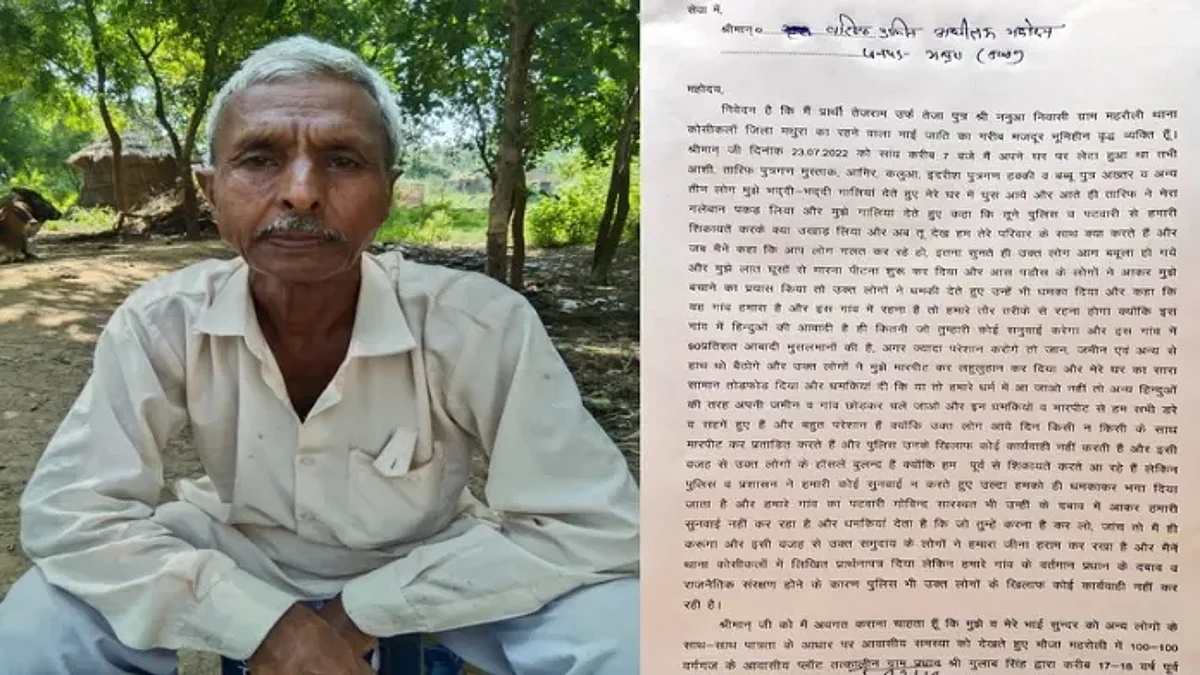 सेवा में,
श्रीमान०  वरिष्ठ पुलिस अधीक्षक महोदय
जनपद- मथुरा
महोदय,
निवेदन है कि मैं प्रार्थी तेजराम उर्फ तेजा पुत्र श्री मनुआ निवासी ग्राम महरौली थाना
कोसीकलाँ जिला मथुरा का रहने वाला नाई जाति का गरीब मजदूर भूमिहीन वृद्ध व्यक्ति हूँ।
श्रीमान् जी दिनांक 23.07.2022 को सांय करीब 7 बजे मैं अपने घर पर लेटा हुआ था तभी
आशी, तारिफ पुत्रगण मुस्ताक, आमिर, कलुआ, इदरीश पुत्रगण हक्की व बब्बू पुत्र अख्तर व अन्य
तीन लोग मुझे भद्दी-भद्दी गालियां देते हुए मेरे घर में घुस आये और आते ही तारिफ ने मेरा
गलेबान पकड़ लिया और मुझे गालियां देते हुए कहा कि तूने पुलिस व पटवारी से हमारी
शिकायते करके क्या उखाड़ लिया और अब तू देख हम तेरे परिवार के साथ क्या करते हैं और
जब मैंने कहा कि आप लोग गलत कर रहे हो, इतना सुनते ही उक्त लोग आग बबूला हो गये
और मुझे लात घूसों से मारना पीटना शुरू कर दिया और आस पडौस के लोगों ने आकर मुझे
बचाने का प्रयास किया तो उक्त लोगों ने धमकी देते हुए उन्हें भी धमका दिया और कहा कि
यह गांव हमारा है और इस गांव में रहना है तो हमारे तौर तरीके से रहना होगा क्योंकि इस
गांव में हिन्दुओं की आबादी है ही कितनी जो तुम्हारी कोई सनुवाई करेगा और इस गांव में
90प्रतिशत आबादी मुसलमानों की है, अगर ज्यादा परेशान करोगे तो जान, जमीन एवं अन्य से
हाथ धो बैठोगे और उक्त लोगों ने मुझे मारपीट कर लहुलुहान कर दिया और मेरे घर का सारा
सामान तोडफोड दिया और धमकियां दी कि या तो हमारे धर्म में आ जाओ नहीं तो अन्य हिन्दुओं
की तरह अपनी जमीन व गांव छोड़कर चले जाओ और इन धमकियों व मारपीट से हम सभी डरे
व सहमें हुए हैं और बहुत परेशान हैं क्योंकि उक्त लोग आये दिन किसी न किसी के साथ
मारपीट कर प्रताडित करते हैं और पुलिस उनके खिलाफ कोई कार्यवाही नहीं करती है और इसी
वजह से उक्त लोगों के हौंसले बुलन्द हैं क्योंकि हम पूर्व से शिकायते करते आ रहे हैं लेकिन
पुलिस व प्रशासन ने हमारी कोई सुनवाई न करते हुए उल्टा हमको ही धमकाकर भगा दिया
जाता है और हमारे गांव का पटवारी गोविन्द सारस्वत भी उन्हीं के दबाव में आकर हमारी
सुनवाई नहीं कर रहा है और धमकियां देता है कि जो तुम्हे करना है कर लो, जांच तो मैं ही
करूंगा और इसी वजह से उक्त समुदाय के लोगों ने हमारा जीना हराम कर रखा है और मैनें
थाना कोसीकलाँ में लिखित प्रार्थनापत्र दिया लेकिन हमारे गांव के वर्तमान प्रधान के दबाव व
राजनैतिक संरक्षण होने के कारण पुलिस भी उक्त लोगों के खिलाफ कोई कार्यवाही नहीं कर
रही है।
श्रीमान् जी को मैं अवगत कराना चाहता हूँ कि मुझे व मेरे भाई सुन्दर को अन्य लोगों के
साथ-साथ पात्रता के आधार पर आवासीय समस्या को देखते हुए मौजा महरोली में 100-100
वर्गगज के आवासीय प्लॉट तत्कालीन ग्राम प्रधान श्री गुलाब सिंह द्वारा करीब 17-18 वर्ष पूर्व